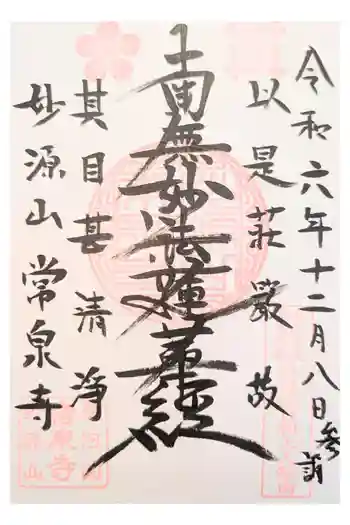 令和六年十二月八日参詣
以是荘嚴故
南無妙法蓮華経
其目甚清浄
妙源山常泉寺